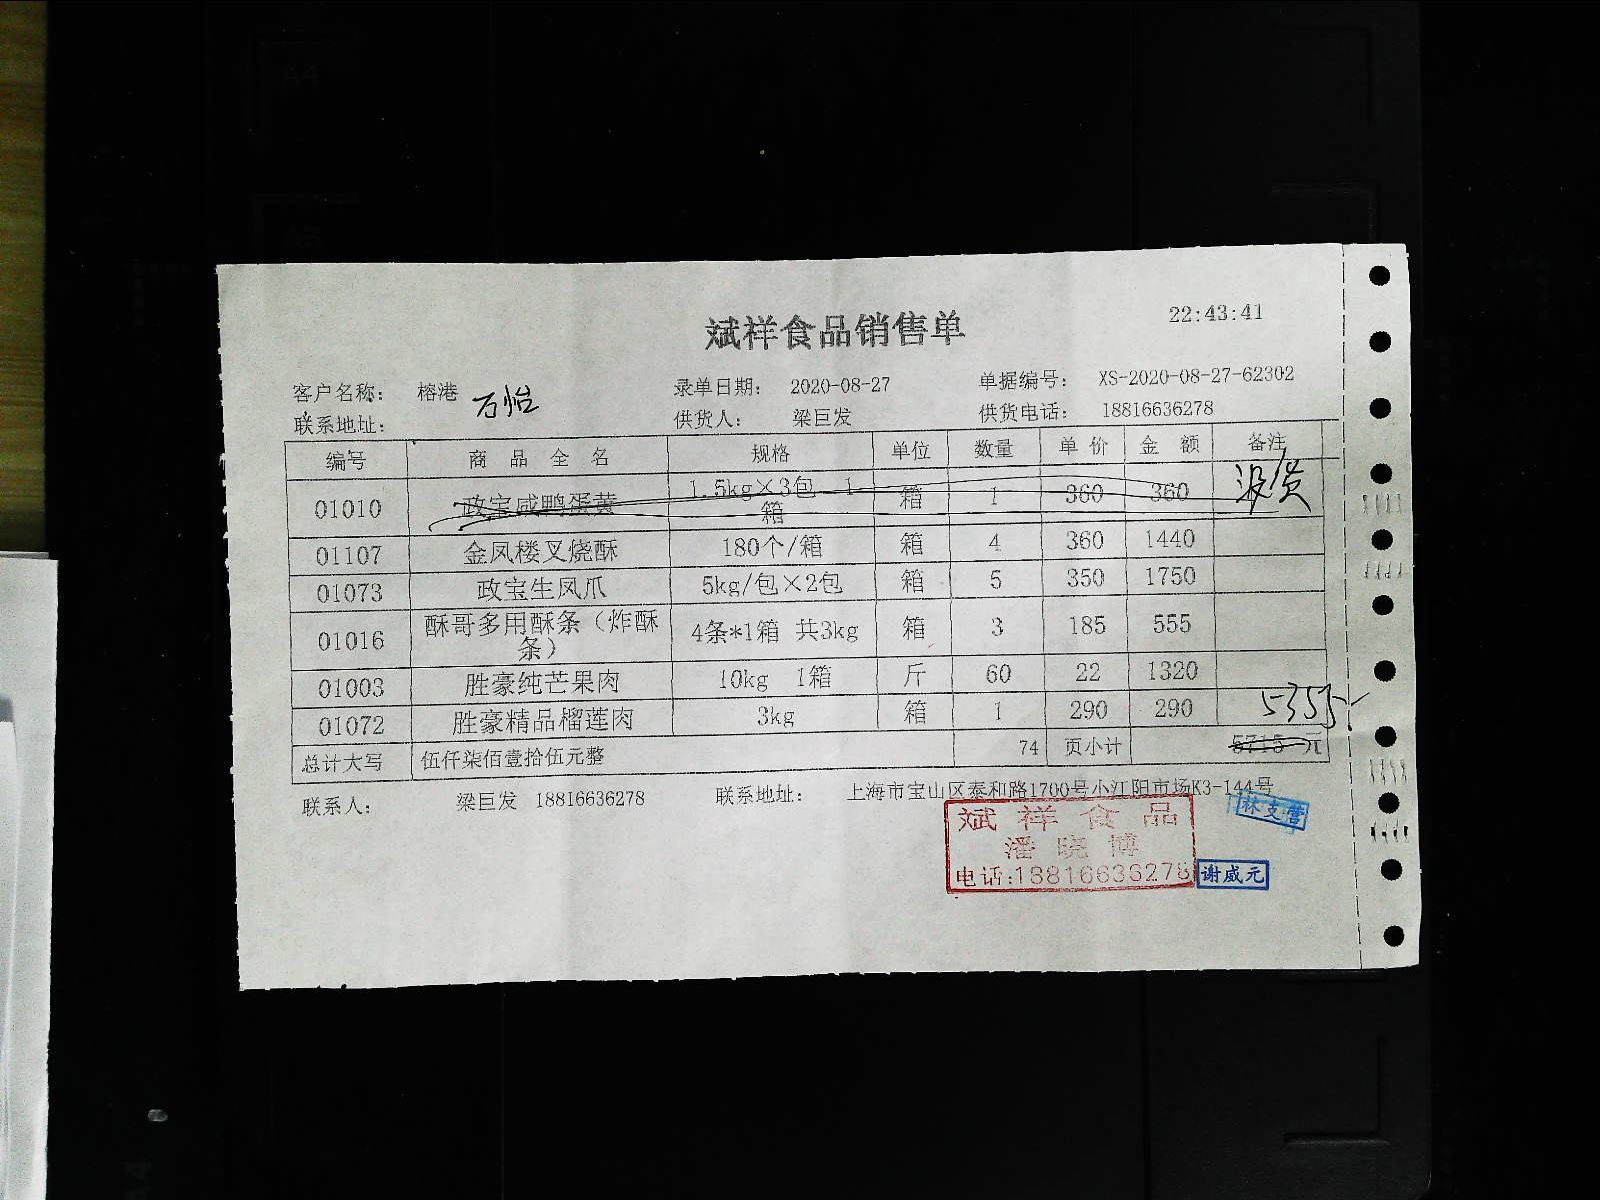 22:43:41
斌祥食品销售单
客户名称： 榕港 万怡 录单日期： 2020-08-27 单据编号： XS-2020-08-27-62302
联系地址： 供货人： 梁巨发 供货电话： 18816636278
编号 商品全名 规格 单位 数量 单价 金额 备注
01010 政宝咸鸭蛋黄 1.5kg×3包 1箱 箱 1 360 360 没货
01107 金凤楼叉烧酥 180个/箱 箱 4 360 1440
01073 政宝生凤爪 5kg/包×2包 箱 5 350 1750
01016 酥哥多用酥条（炸酥条） 4条*1箱 共3kg 箱 3 185 555
01003 胜豪纯芒果肉 10kg 1箱 斤 60 22 1320
01072 胜豪精品榴莲肉 3kg 箱 1 290 290 5355
总计大写 伍仟柒佰壹拾伍元整 74 页小计 5715 元
联系人： 梁巨发 18816636278 联系地址： 上海市宝山区泰和路1700号小江阳市场K3-144号
斌祥食品
潘晓博
电话:18816636278
林支营
谢威元
A4
A5